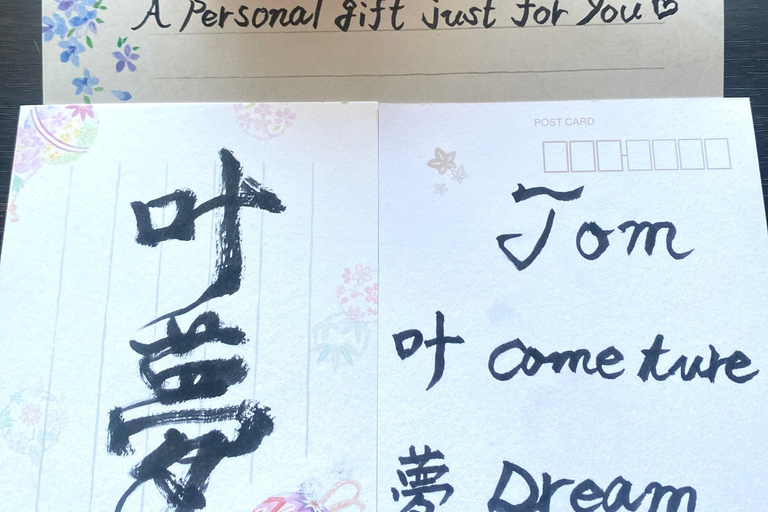 A Personal gift just for You
叶
夢
POST CARD
Tom
叶 come ture
夢 Dream